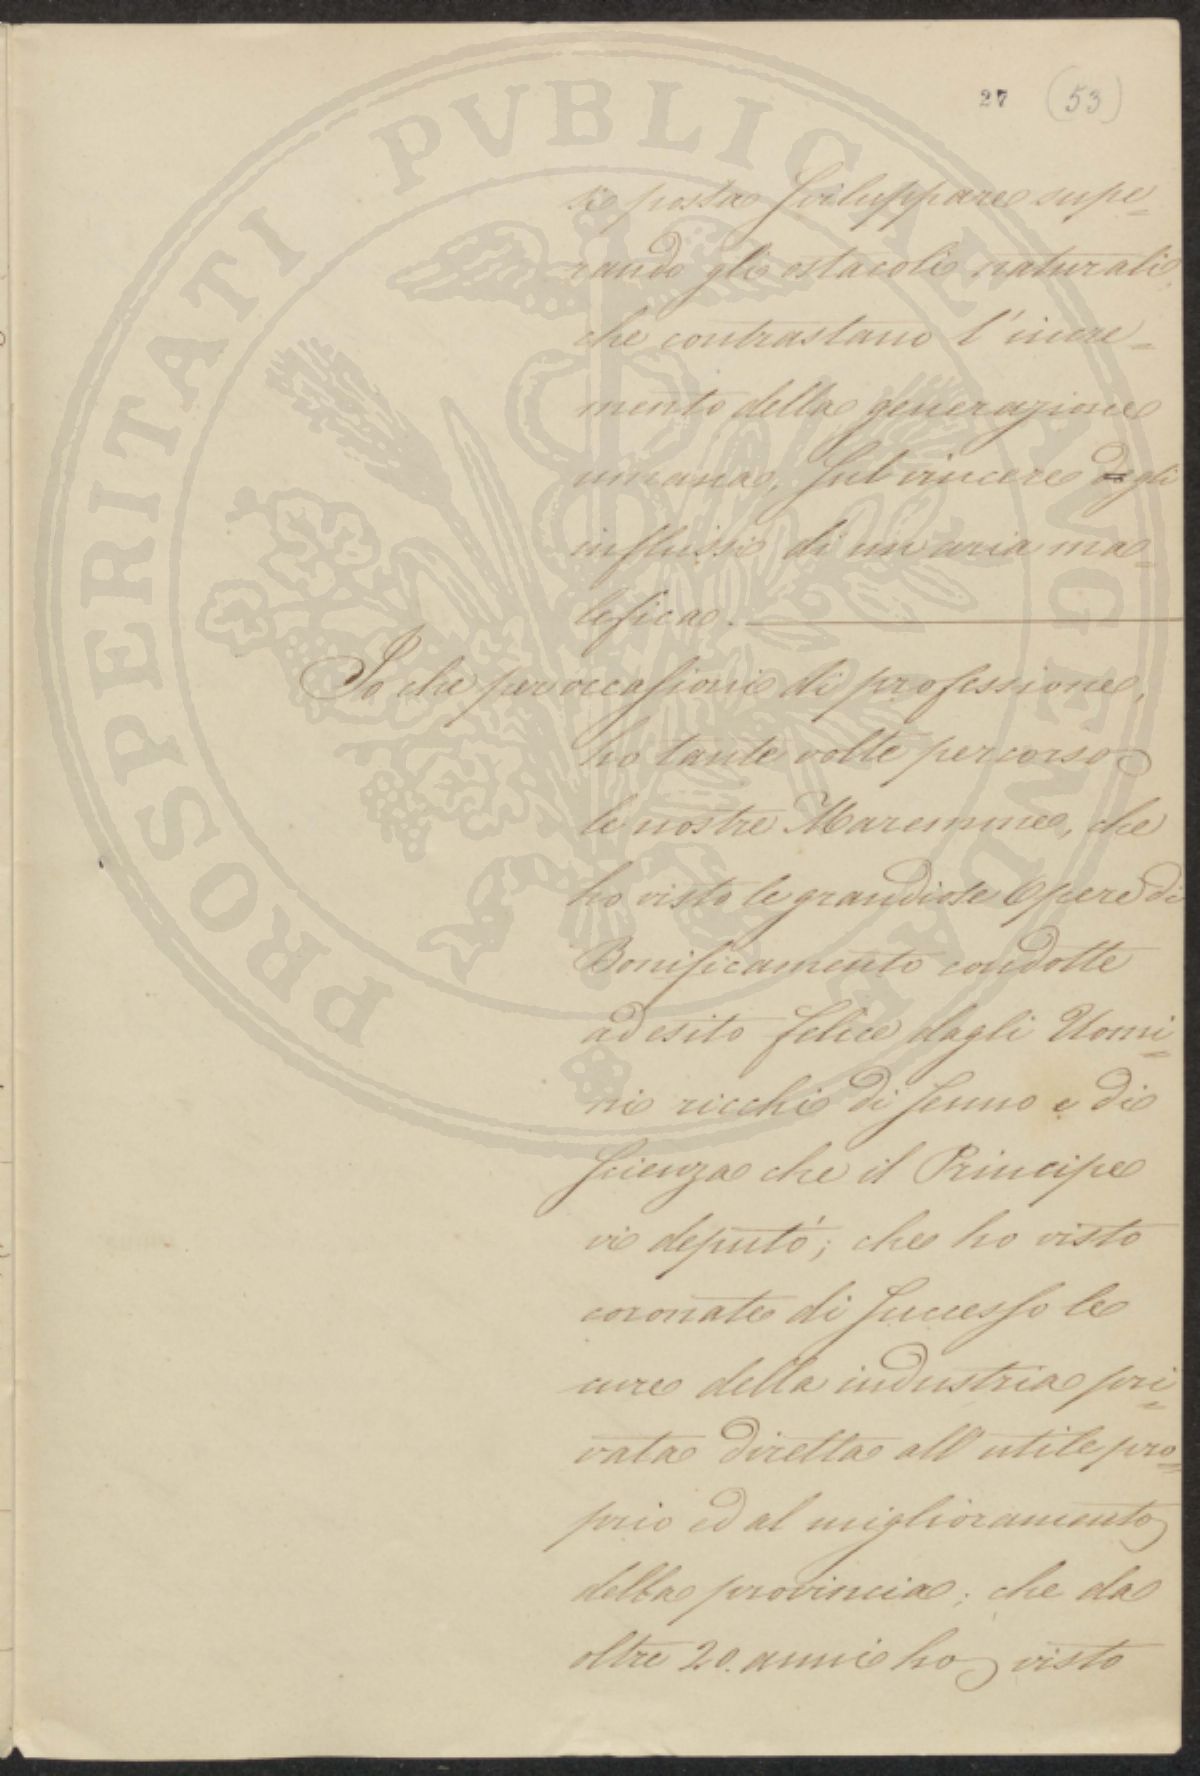 27 (53)
si possa sviluppare supe=
rando gli ostacoli naturali
che contrastano l'incre=
mento della generazione
umana, sul vincere degli
influssi di un aria ma=
lefica.
Io che per occasioni di professione,
ho tante volte percorso
le nostre Maremme, che
ho visto le grandiose Opere di
Bonificamento condotte
ad esito felice dagli Uomi=
ni ricchi di senno e di
scienza che il Principe
vi deputò; che ho visto
coronate di successo le
cure della industria pri=
vata diretta all'utile pro=
prio ed al miglioramento
della provincia; che da
oltre 20. anni ho visto
PROSPERITATI PVBLICAE AVGENDAE